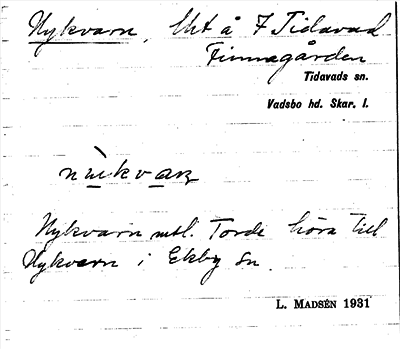 Nykvarn, Ukt å 7 Tidavad
Finnagården
Tidavads sn.
Vadsbo hd. Skar. l.
Nykvarn mtl. Torde höra till
Nykvarn i Ekby sn.
L. MADSÉN 1931